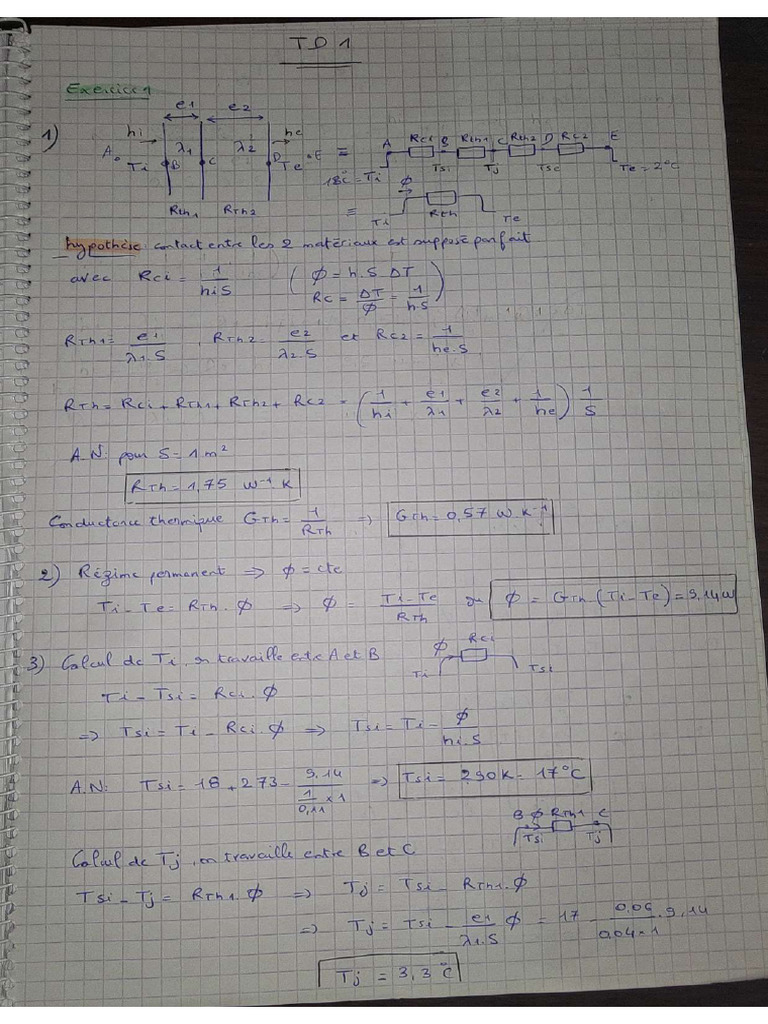 TD 1
Exercice 1
e1 e2
1) hi λ1 λ2 he = A Rci B Rth1 C Rth2 D Rc2 E
A Ti B C D Te E 18°C=Ti Tsi Tj Tse Te=2°C
Rth1 Rth2 = Ti ϕ Rth Te
hypothèse: contact entre les 2 matériaux est supposé parfait
avec Rci = 1/(hi S) ( ϕ = h.S.ΔT
Rc = ΔT/ϕ = 1/(h.S) )
RTh1 = e1/(λ1.S) , RTh2 = e2/(λ2.S) et Rc2 = 1/(he.S)
RTh = Rci + RTh1 + RTh2 + Rc2 = (1/hi + e1/λ1 + e2/λ2 + 1/he) 1/S
A.N: pour S = 1 m²
RTh = 1,75 W⁻¹ K
Conductance thermique GTh = 1/RTh => GTh = 0,57 W K⁻¹
2) Régime permanent => ϕ = cte
Ti - Te = RTh . ϕ => ϕ = (Ti - Te)/RTh ou ϕ = GTh (Ti - Te) = 9,14 W
3) Calcul de Ti, on travaille entre A et B ϕ Rci Ti Tsi
Ti - Tsi = Rci . ϕ
=> Tsi = Ti - Rci . ϕ => Tsi = Ti - ϕ/(hi.S)
A.N: Tsi = 18 + 273 - 9,14/(1/0,11 x 1) => Tsi = 290K = 17°C
B ϕ RTh1 C
Tsi Tj
Calcul de Tj, on travaille entre B et C
Tsi - Tj = RTh1 . ϕ => Tj = Tsi - RTh1 . ϕ
=> Tj = Tsi - e1/(λ1.S) ϕ = 17 - 0,06/(0,04 x 1) . 9,14
Tj = 3,3 °C